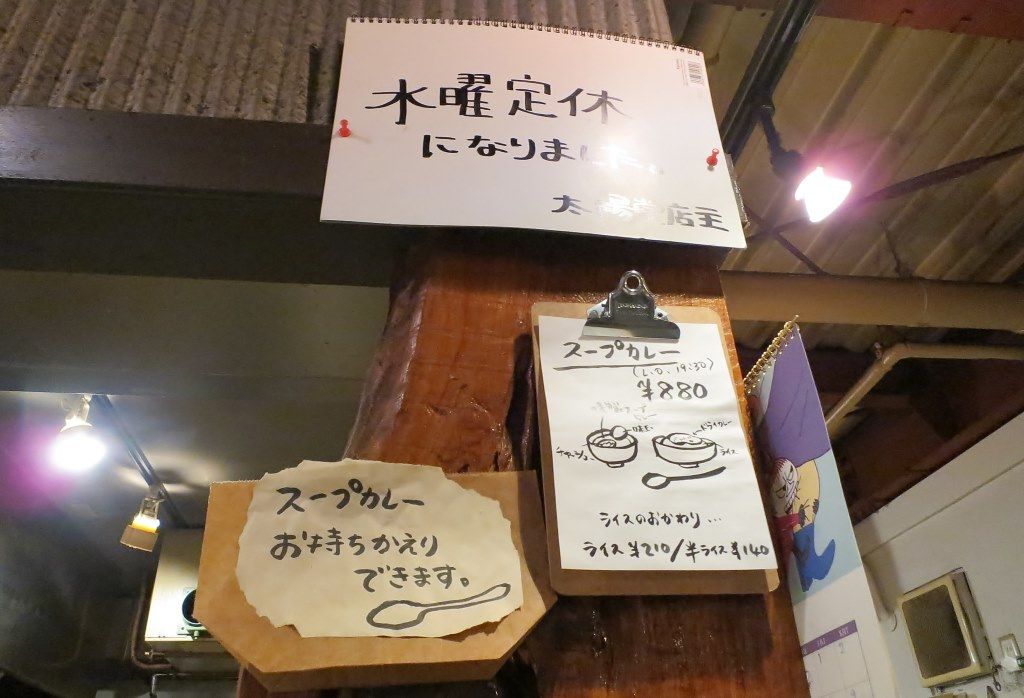 水曜定休
になりました。
店主
スープカレー
(L.O. 19:30)
¥880
味玉
ドライカレー
チャーシュー
ライス
ライスのおかわり…
ライス¥210/半ライス¥140
スープカレー
お持ちかえり
できます。